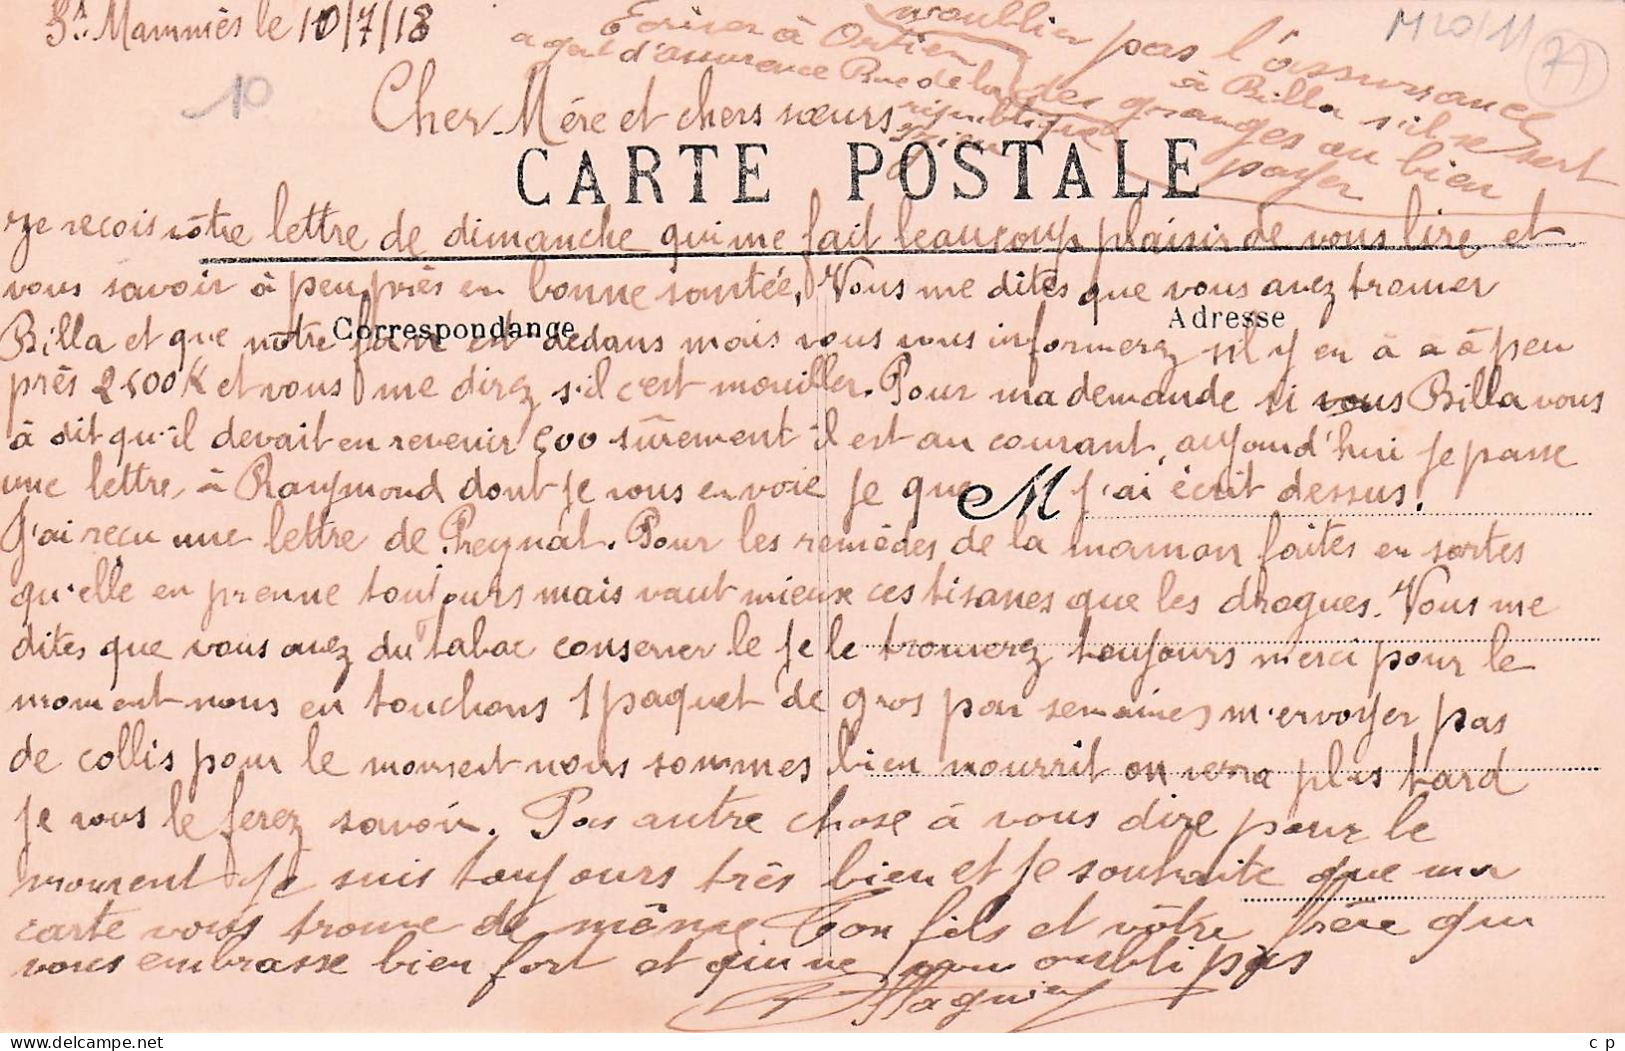 St Mammès le 10/7/18
M 20/11
77
10
n'oublier pas l'assurance
des granges au bien
à Billa s'il se sert
payer
Ecriser à Ortien
agent d'assurance Rue de la
république
Cher Mére et chers sœurs
CARTE POSTALE
Je recois vôtre lettre de dimanche qui me fait beaucoup plaisir de vous lire et
vous savoir à peu près en bonne santée, Vous me dites que vous avez tromer
Correspondance
Adresse
Billa et que nôtre foin est dedans mais vous vous informerez s'il y en à a à peu
près 2500K et vous me direz s'il c'est mouiller. Pour ma demande si vous Billa vous
à dit qu'il devait en revenir 500 sûrement il est au courant, aujourd'hui je passe
une lettre à Raymond dont je vous envoie je que j'ai écrit dessus.
M
J'ai recu une lettre de Preynat. Pour les remèdes de la maman faites en sortes
qu'elle en prenne toutjours mais vaut mieux ces tisanes que les drogues. Vous me
dites que vous avez du tabac conserver le je le trouverez toujours merci pour le
moment nous en touchons 1 paquet de gros par semaines m'envoyer pas
de collis pour le moment nous sommes bien nourrit on verra plus tard
je vous le ferez savoir. Pas autre chose à vous dire pour le
moment Je suis toujours très bien et je souhaite que ma
carte vous trouve de même Ton fils et vôtre frère qui
vous embrasse bien fort et qui ne vous oubli pas
Magnien
delcampe.net
c p